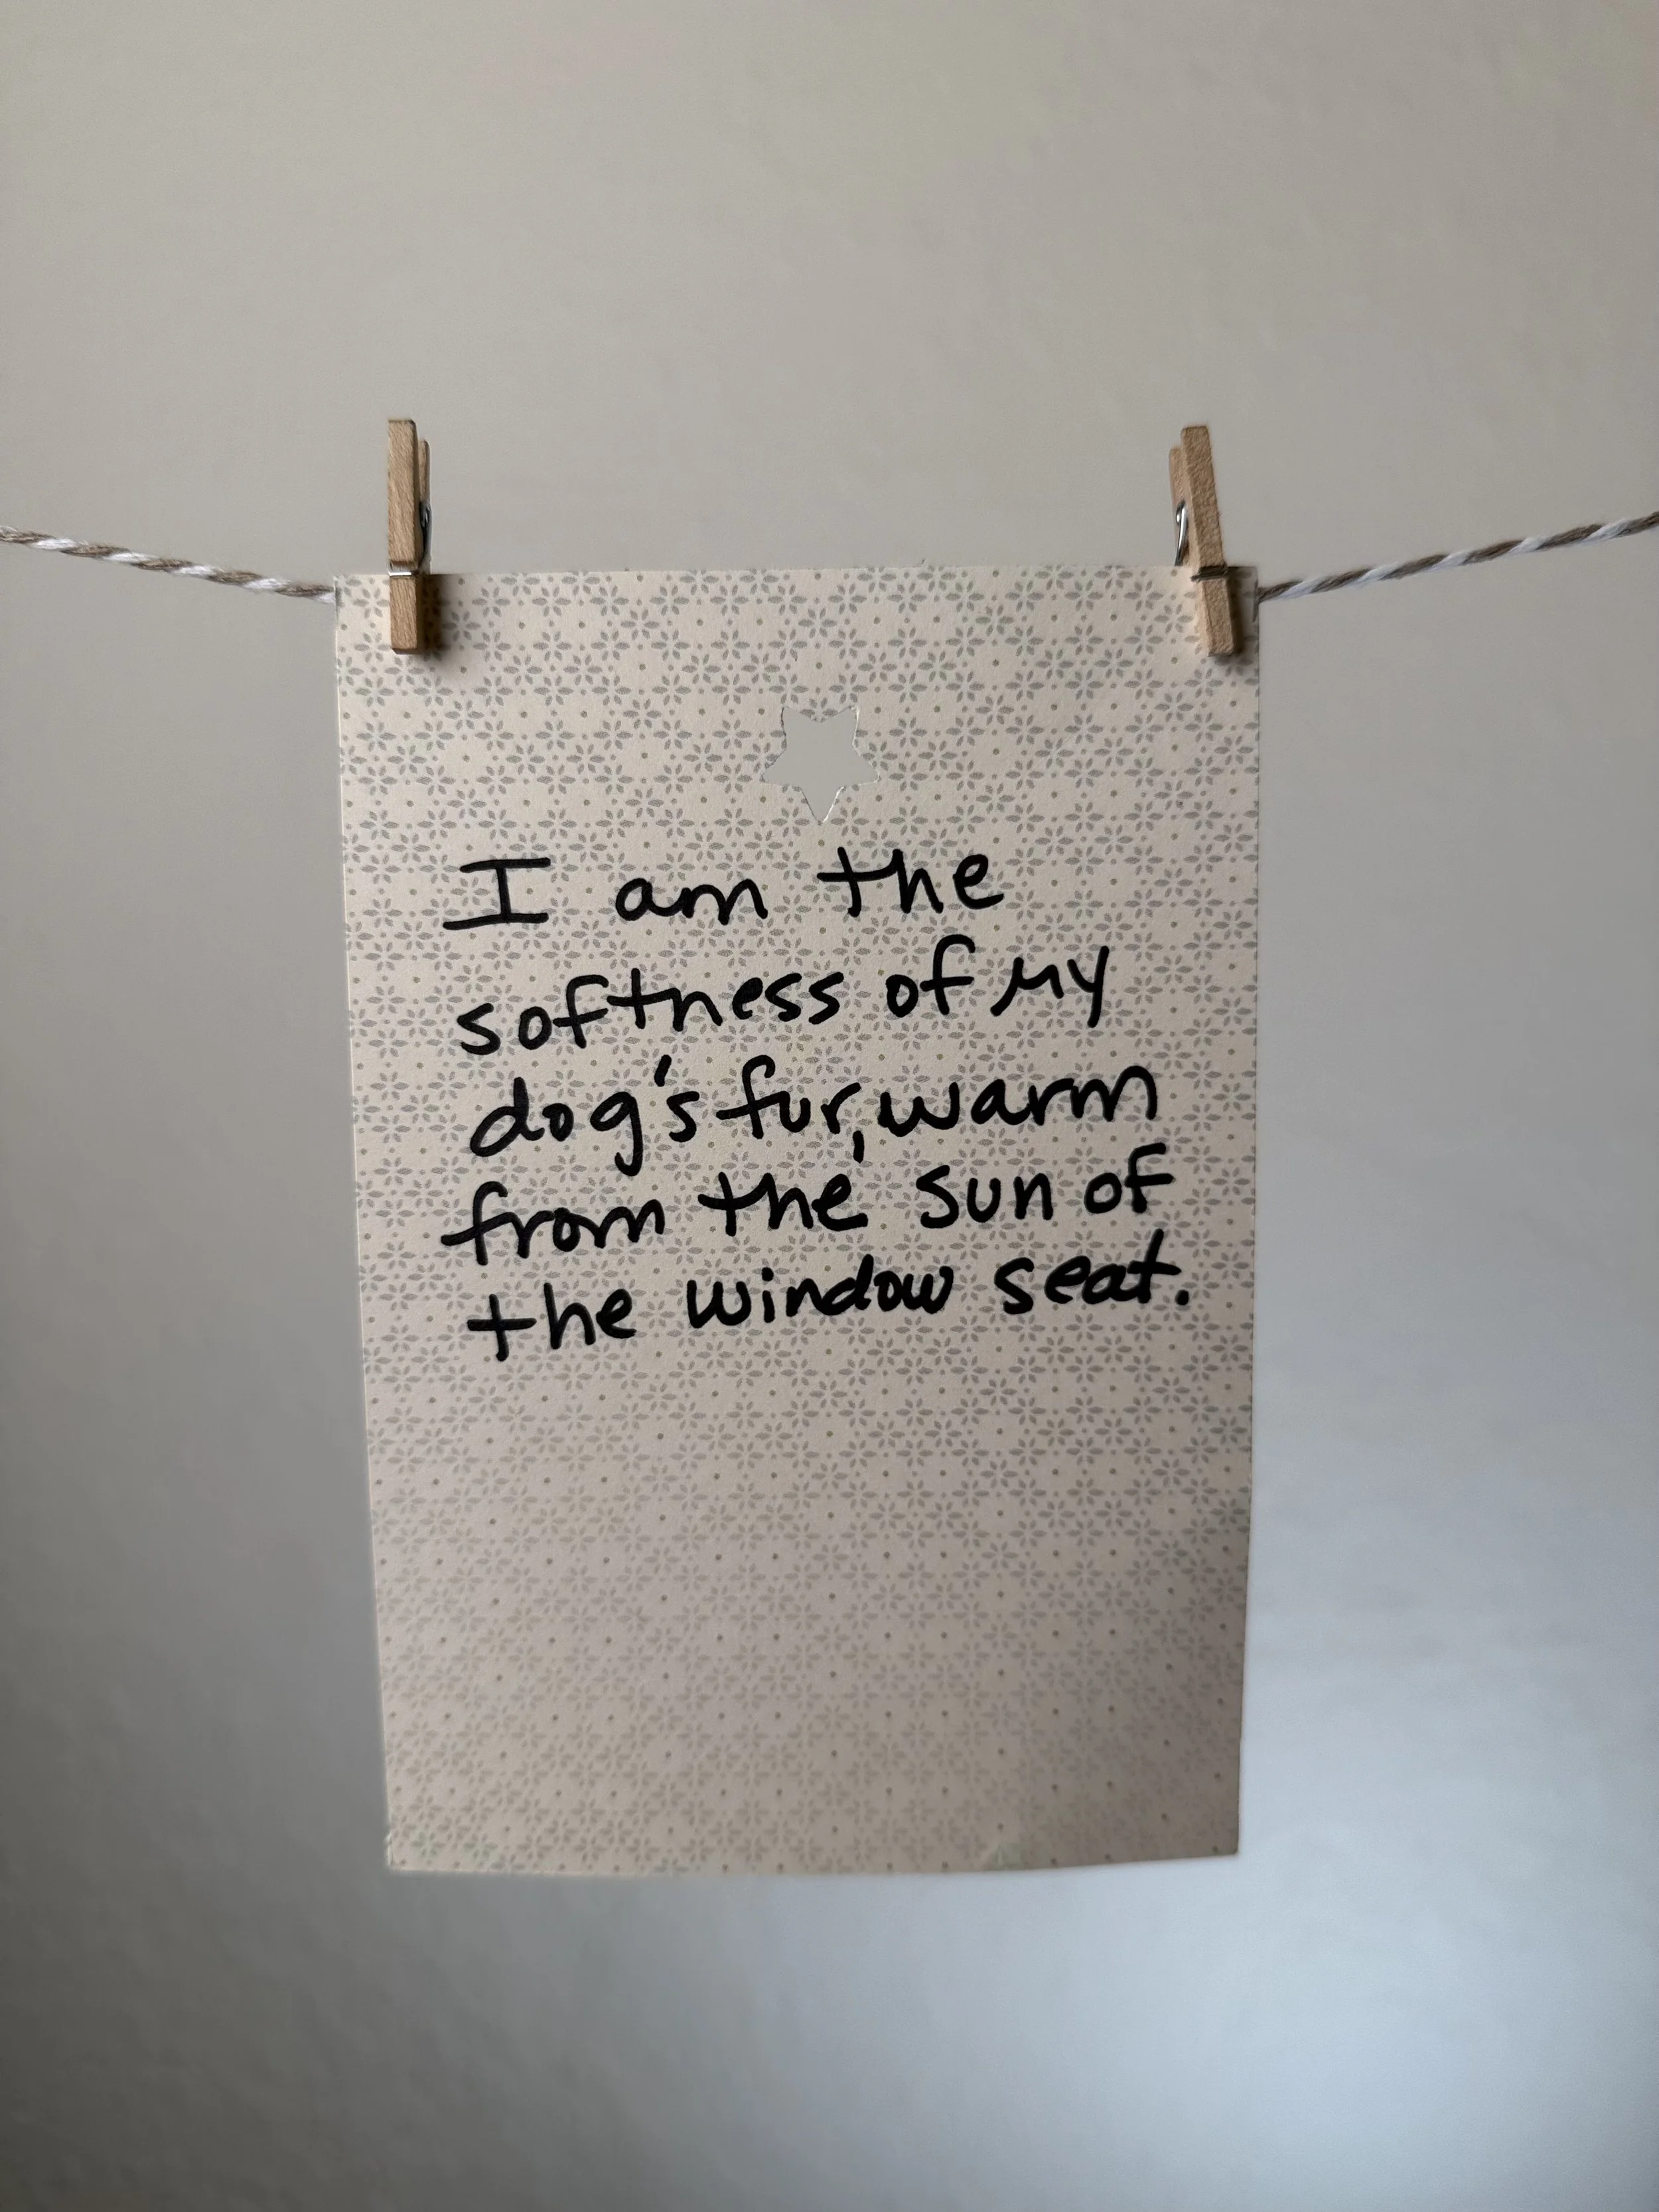 I am the
softness of my
dog's fur, warm
from the sun of
the window seat.